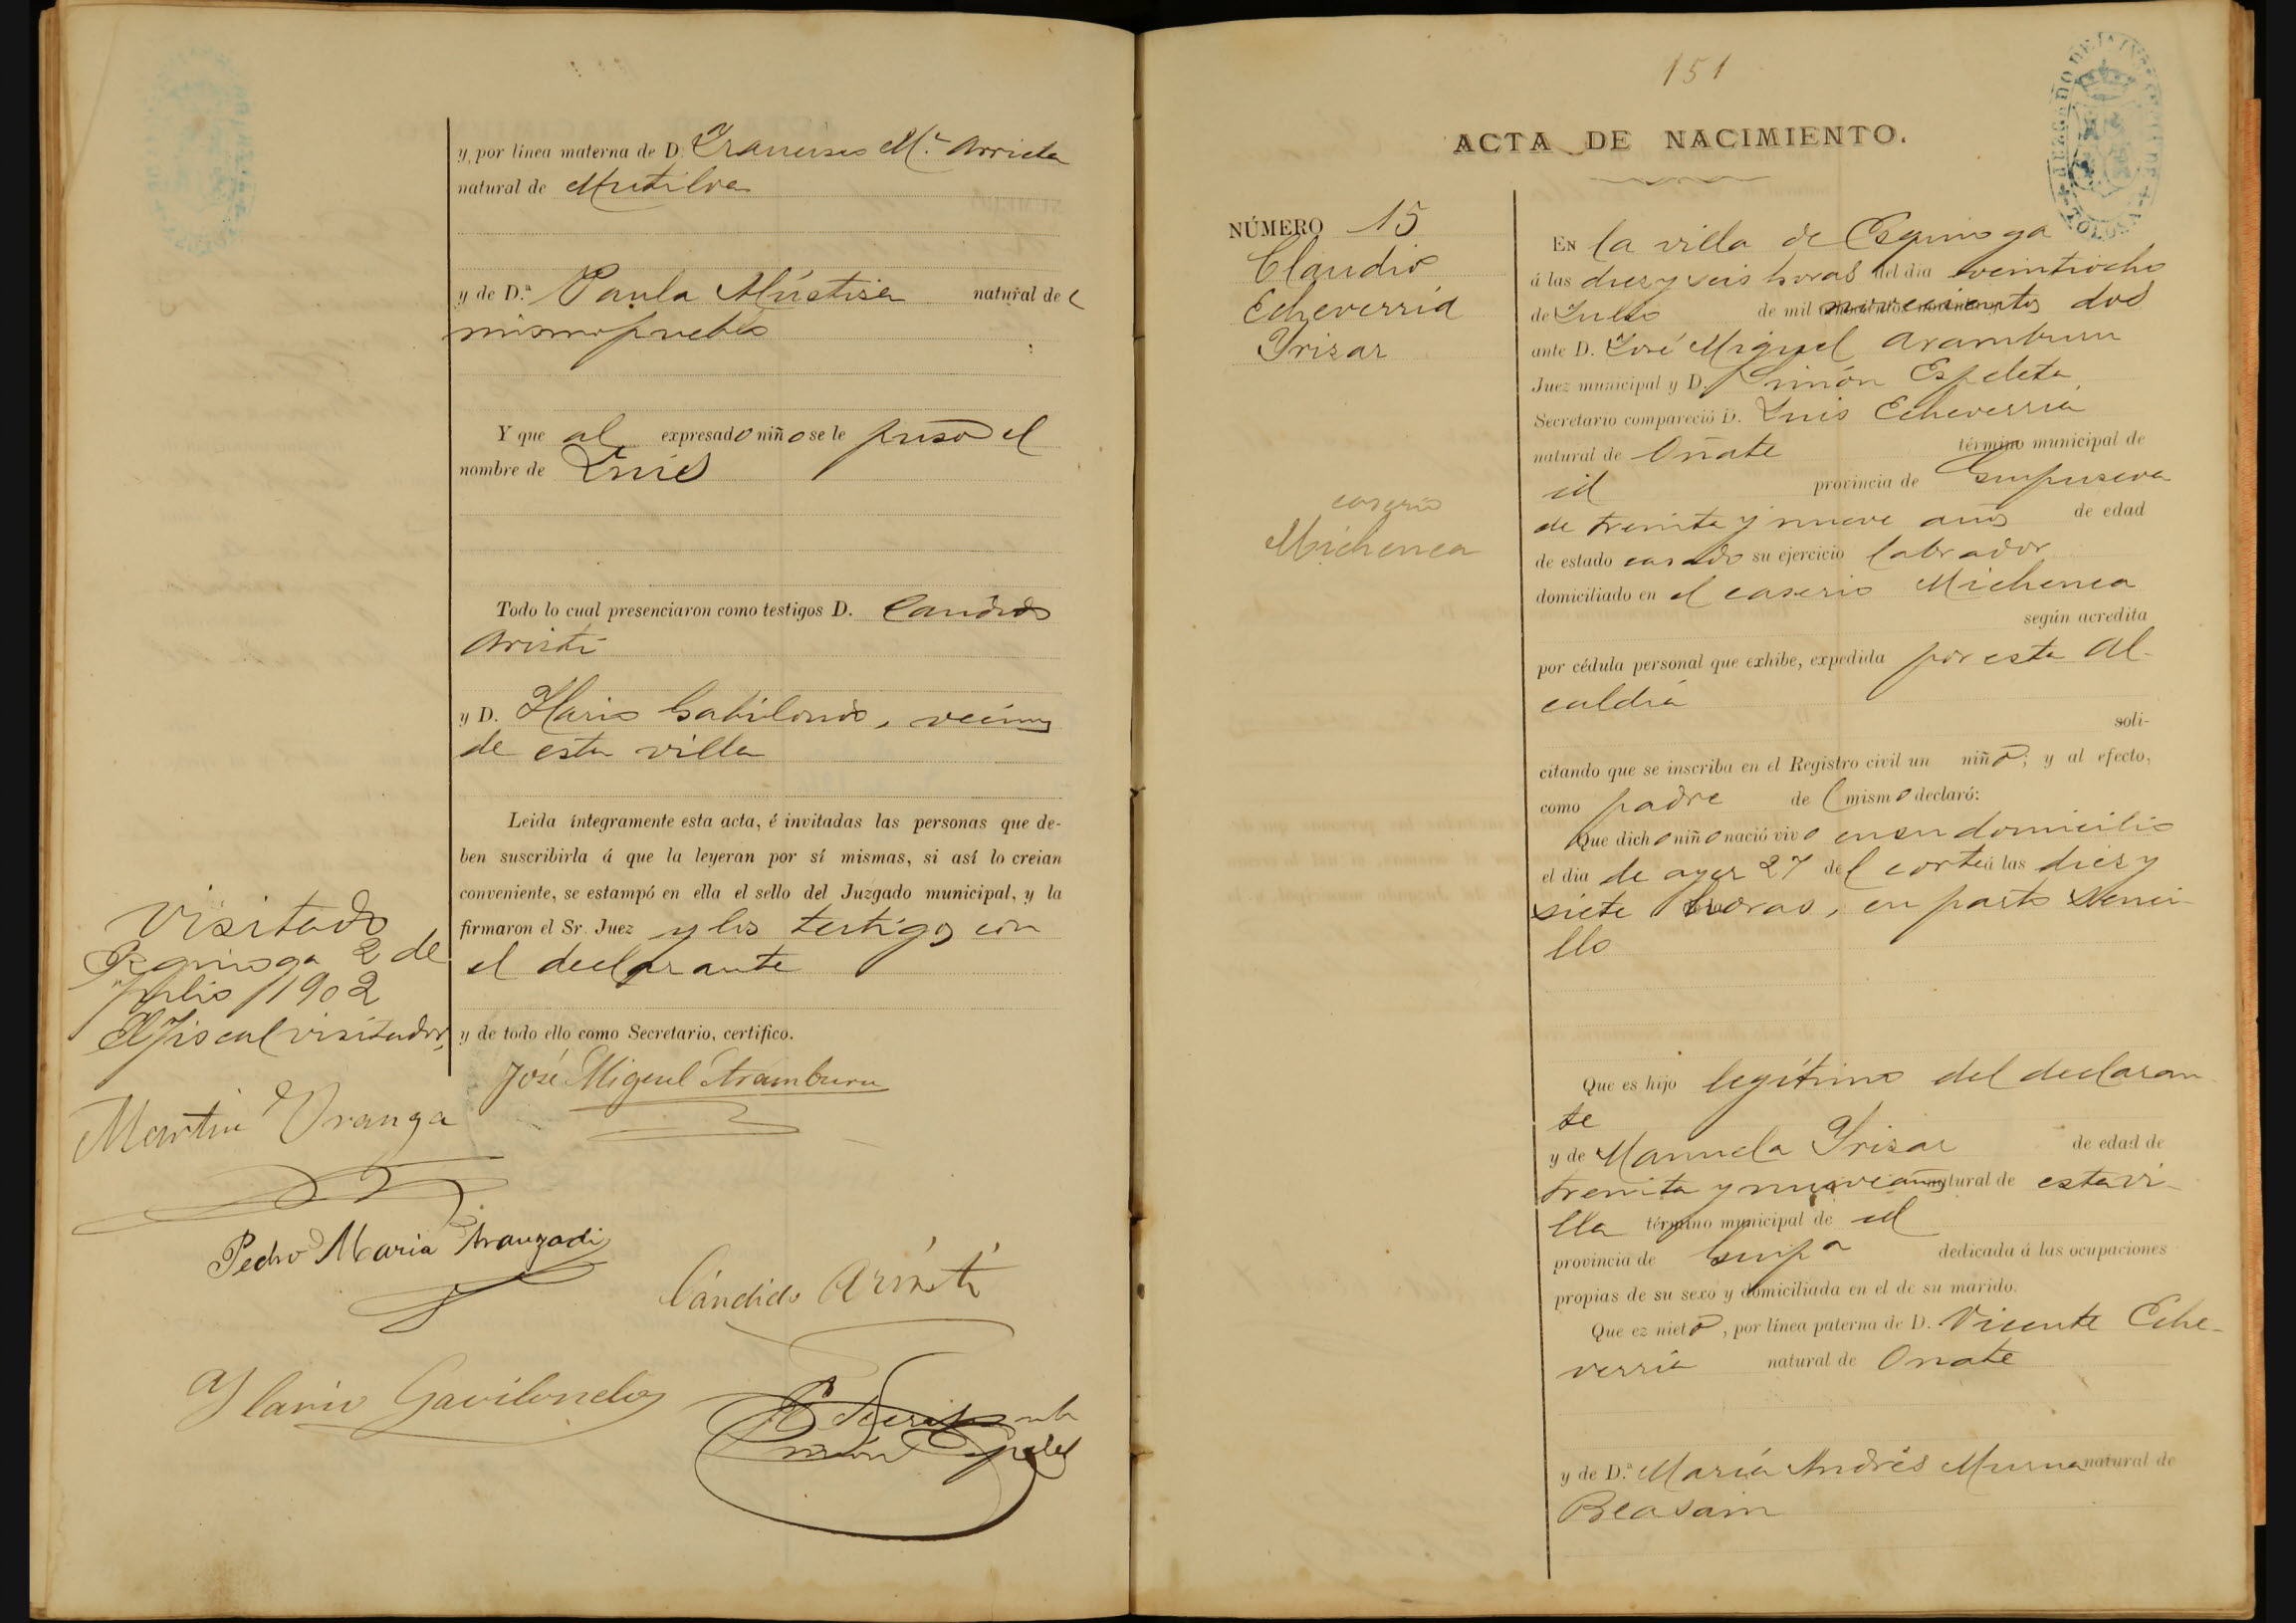 y, por línea materna de D. Francisco M.ª Arrieta
natural de Mutiloa
y de D.ª Paula Mústisa natural del
mismo pueblo
Y que al expresado niño se le puso el
nombre de Luis
Todo lo cual presenciaron como testigos D. Candido
Aristi
y D. Ylario Gabilondo, vecinos
de esta villa
Leida íntegramente esta acta, é invitadas las personas que de-
ben suscribirla á que la leyeran por sí mismas, si así lo creian
conveniente, se estampó en ella el sello del Juzgado municipal, y la
firmaron el Sr. Juez y los testigos con
el declarante
y de todo ello como Secretario, certifico.
Visitado
Ezquioga 2 de
Julio 1902
El Fiscal visitador,
Martin Oranga
José Miguel Aramburu
Pedro Maria Aranzadi
Cándido Aristi
Ylario Gavilondo
Simón Espeleta
151
ACTA DE NACIMIENTO.
JUZGADO DE 1A INST DE TOLOSA
NÚMERO 15
Claudio
Echeverria
Yrizar
caserio
Michenea
En la villa de Ezquioga
á las diez y seis horas del dia veintiocho
de Julio de mil novecientos dos
ante D. José Miguel Aramburu
Juez municipal y D. Simón Espeleta
Secretario compareció D. Luis Echeverria
natural de Oñate término municipal de
id provincia de Guipuscoa
de treinta y nueve años de edad
de estado casado su ejercicio labrador
domiciliado en el caserio Michenea
según acredita
por cédula personal que exhibe, expedida por esta Al-
caldia
soli-
citando que se inscriba en el Registro civil un niño; y al efecto,
como padre del mismo declaró:
Que dicho niño nació vivo en su domicilio
el dia de ayer 27 del corte á las diez y
siete horas, en parto senci-
llo
Que es hijo legítimo del declaran
te
y de Manuela Yrizar de edad de
treinta y nueve años natural de esta vi-
lla término municipal de id
provincia de Guipª dedicada á las ocupaciones
propias de su sexo y domiciliada en el de su marido.
Que ez nieto, por línea paterna de D. Vicente Eche-
verria natural de Oñate
y de D.ª María Andrés Murua natural de
Beasain